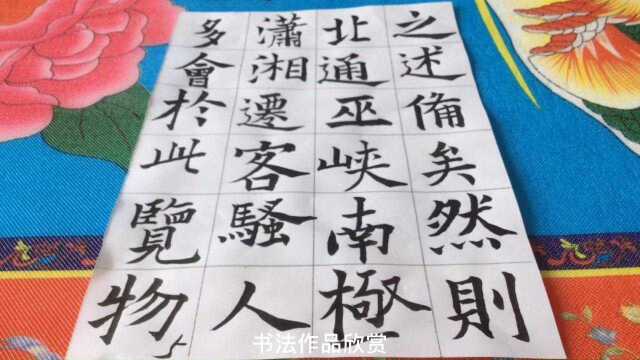 之述俻矣然則
北通巫峽南極
瀟湘遷客騷人
多會於此覽物
书法作品欣赏